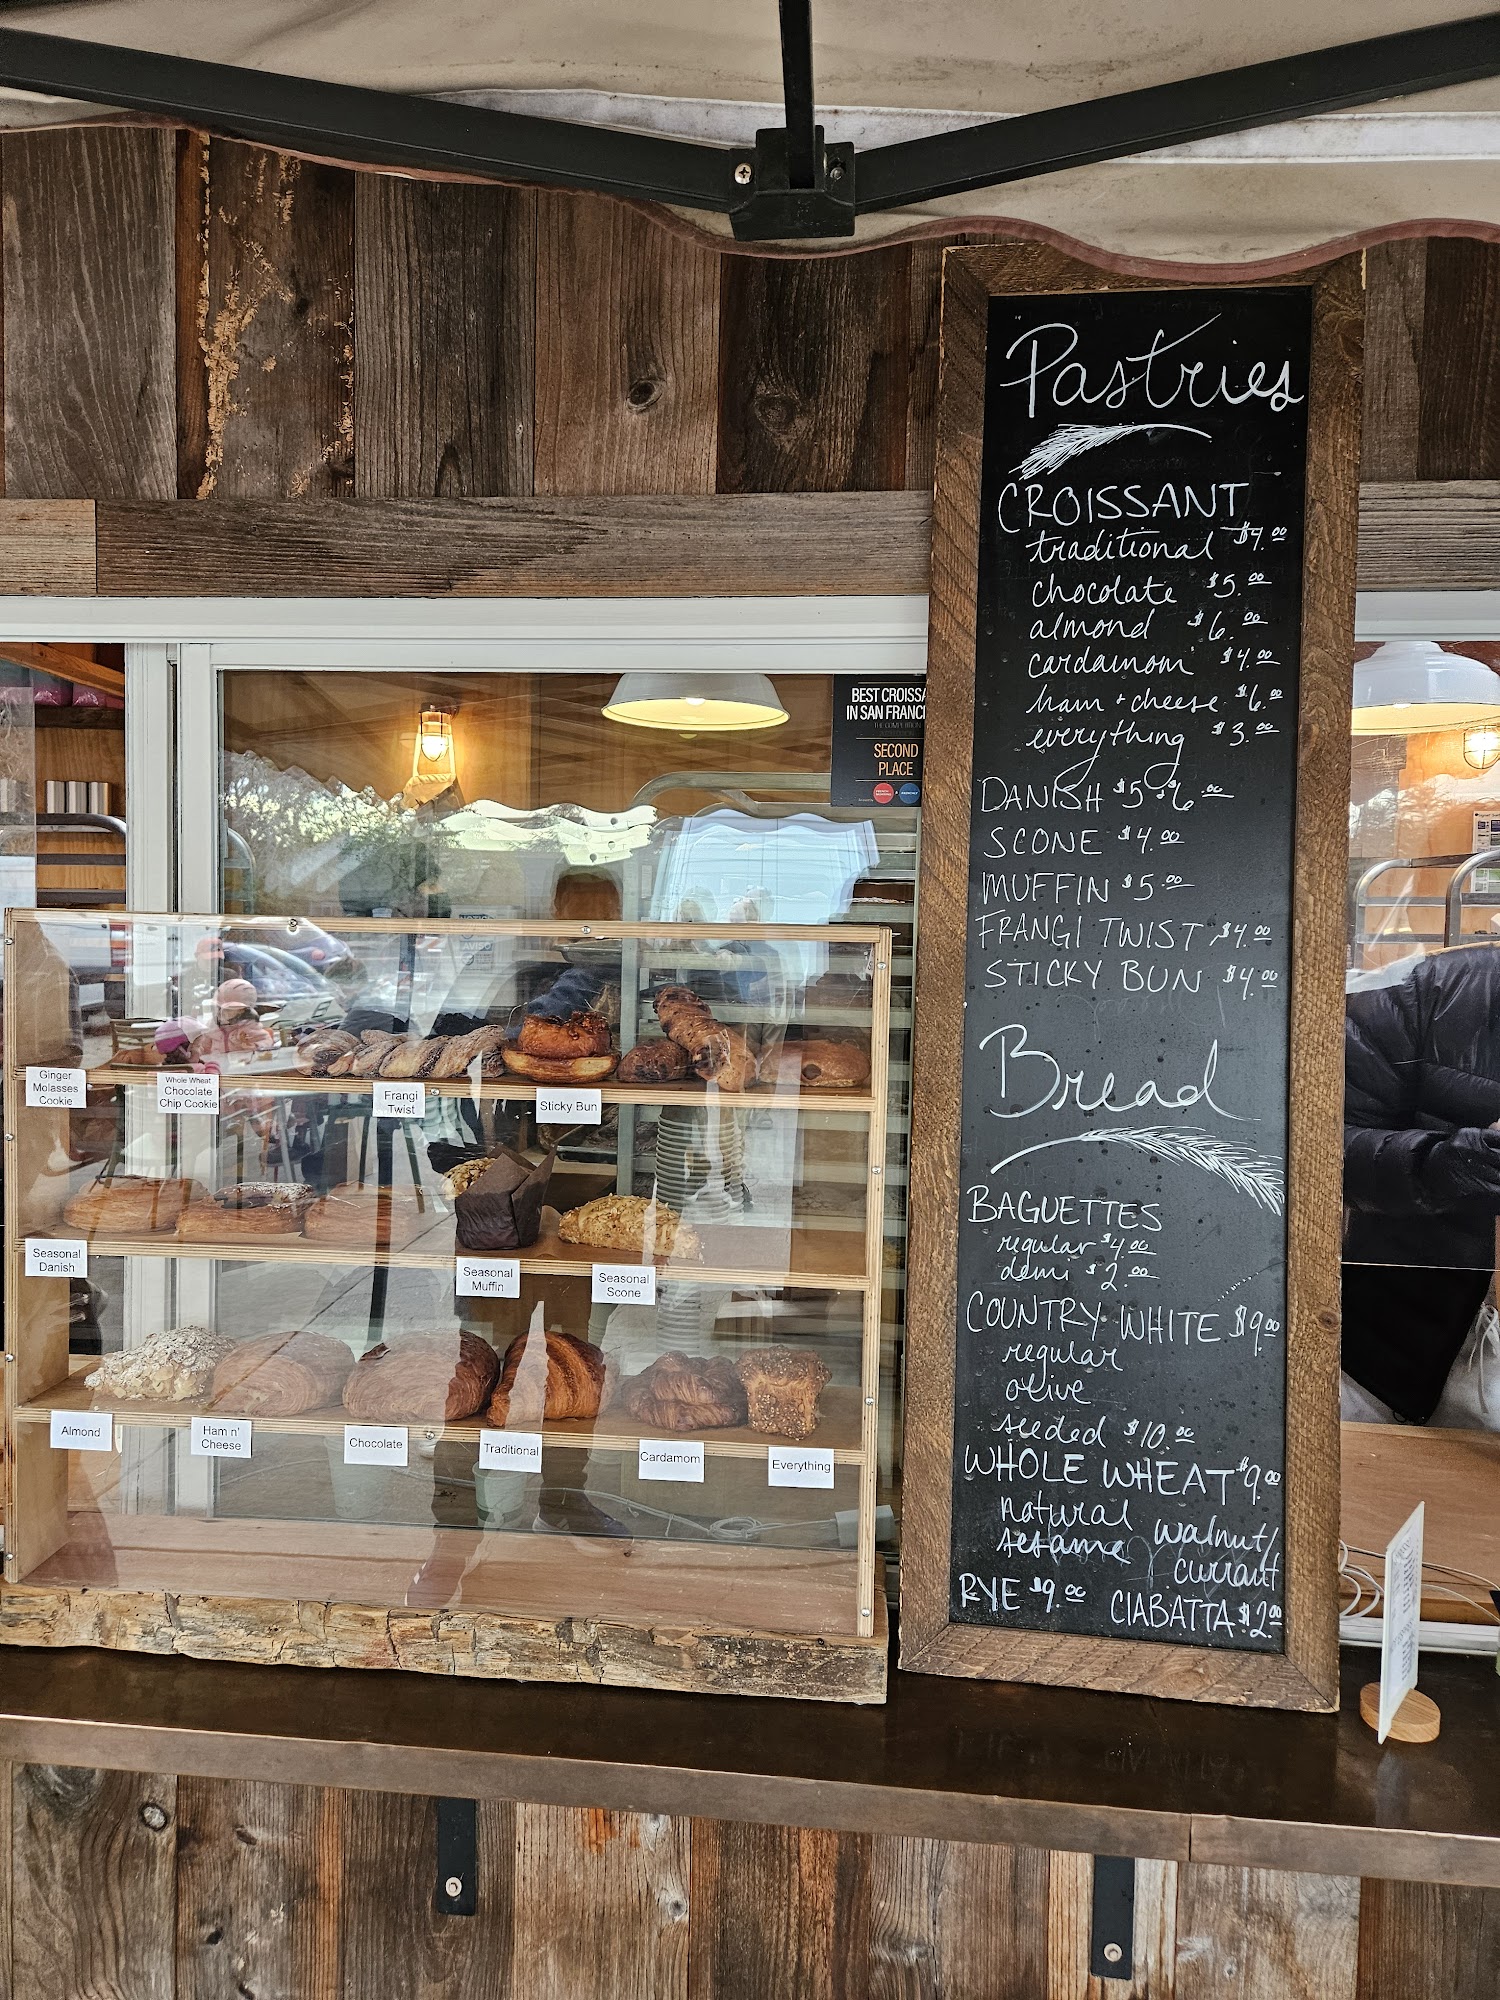 Pastries
CROISSANT
traditional $4.00
chocolate $5.00
almond $6.00
cardamom $4.00
ham + cheese $6.00
everything $3.00
DANISH $5-$6.00
SCONE $4.00
MUFFIN $5.00
FRANGI TWIST $4.00
STICKY BUN $4.00
Bread
BAGUETTES
regular $4.00
demi $2.00
COUNTRY WHITE $9.00
regular
olive
seeded $10.00
WHOLE WHEAT $9.00
natural
sesame walnut/
currant
RYE $9.00 CIABATTA $2.00
BEST CROISSA
IN SAN FRANCI
SECOND
PLACE
Ginger
Molasses
Cookie
Whole Wheat
Chocolate
Chip Cookie
Frangi
Twist
Sticky Bun
Seasonal
Danish
Seasonal
Muffin
Seasonal
Scone
Almond
Ham n'
Cheese
Chocolate
Traditional
Cardamom
Everything